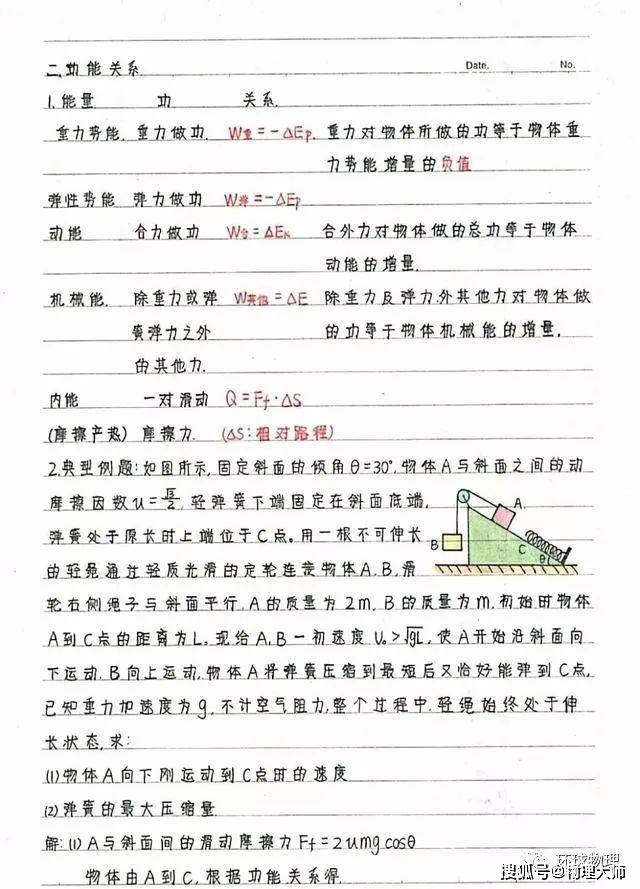 二.功能关系. Date. No.
1.能量 功 关系.
重力势能. 重力做功. W重=-ΔEp. 重力对物体所做的功等于物体重
力势能增量的负值
弹性势能 弹力做功 W弹=-ΔEp
动能 合力做功 W合=ΔEk 合外力对物体做的总功等于物体
动能的增量.
机械能. 除重力或弹 W其他=ΔE 除重力及弹力外其他力对物体做
簧弹力之外 的功等于物体机械能的增量.
的其他力.
内能 一对滑动 Q=Ff·ΔS
(摩擦产热) 摩擦力. (ΔS:相对路程)
2.典型例题:如图所示,固定斜面的倾角θ=30°,物体A与斜面之间的动
摩擦因数u=√3/2,轻弹簧下端固定在斜面底端,
弹簧处于原长时上端位于C点。用一根不可伸长
的轻绳通过轻质光滑的定轮连接物体A.B,滑
轮右侧绳子与斜面平行,A的质量为2m,B的质量为m,初始时物体
A到C点的距离为L。现给A.B一初速度υ₀>√gL,使A开始沿斜面向
下运动,B向上运动,物体A将弹簧压缩到最短后又恰好能弹到C点,
已知重力加速度为g,不计空气阻力,整个过程中,轻绳始终处于伸
长状态,求:
(1)物体A向下刚运动到C点时的速度
(2)弹簧的最大压缩量
解:(1)A与斜面间的滑动摩擦力Ff=2umgcosθ
物体由A到C,根据功能关系得
A
B
C
θ
环球物理
搜狐号@物理大师